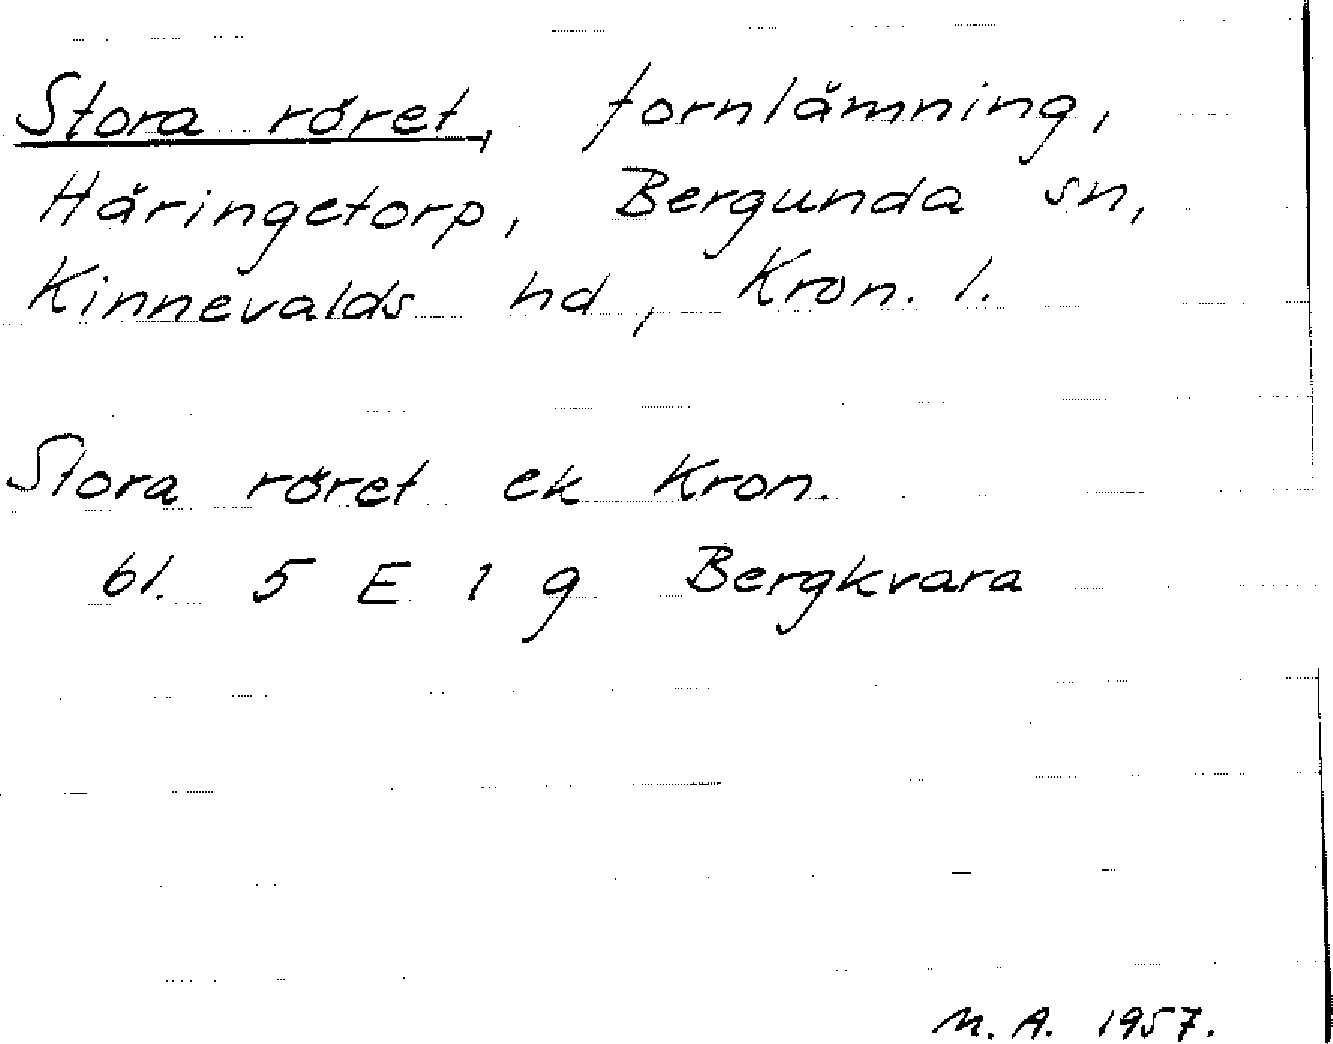 Stora röret, fornlämning,
Häringetorp, Bergunda sn,
Kinnevalds hd, Kron. l.
Stora röret ek Kron.
bl. 5 E 1 g Bergkvara
M. A. 1957.